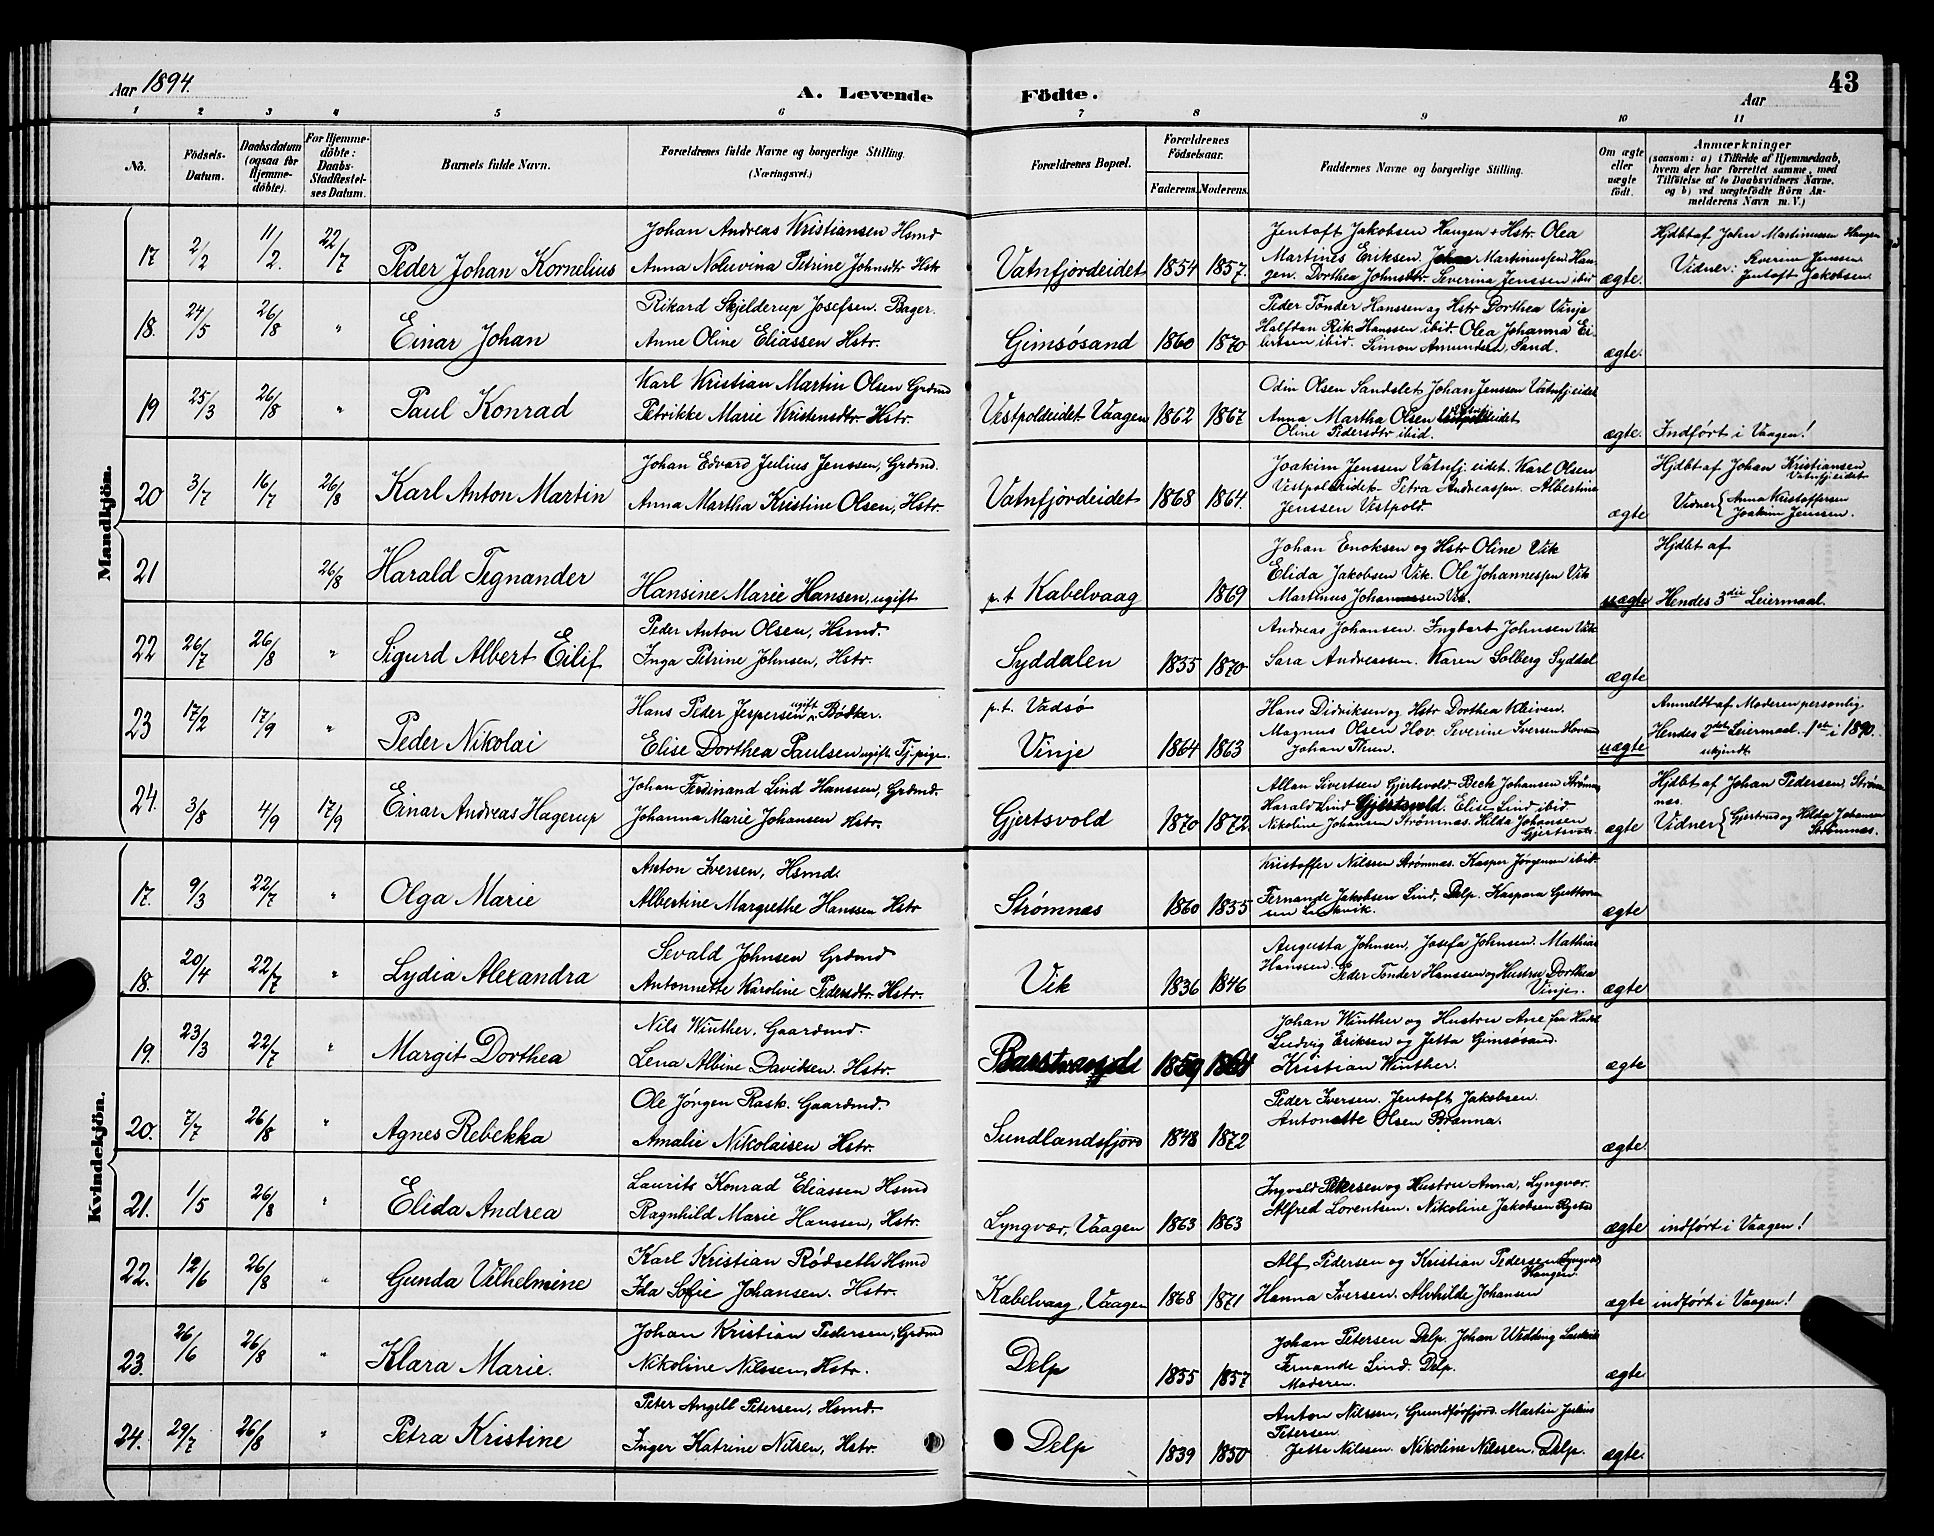 Aar 1894.
A. Levende Födte.
Aar
43
1 2 3 4 5 6 7 8 9 10 11
No.
Födsels-Datum.
Daabsdatum (ogsaa for Hjemmedöbte).
For Hjemmedöbte: Daabs-Stadfæstelses Datum.
Barnets fulde Navn.
Forældrenes fulde Navne og borgerlige Stilling. (Næringsvei.)
Forældrenes Bopæl.
Forældrenes Födselsaar.
Faderens. Moderens.
Faddernes Navne og borgerlige Stilling.
Om ægte eller uægte födt.
Anmærkninger
(saasom: a) i Tilfælde af Hjemmedaab, hvem der har forrettet samme, med Tilföielse af to Daabsvidners Navne, og b) ved uægtefödte Börn Anmelderens Navn m. V.)
Mandkjön.
17 2/2 11/2. 22/7 Peder Johan Kornelius
Johan Andreas Kristiansen Hsmd
Anna Noluvina Petrine Johnsdtr Hstr
Vatnfjordeidet 1854 1857.
Jentoft Jakobsen Haugen + Hstr Olea
Martines Eriksen. Martinussen Haugen. Dorthea Johnsdtr. Severina Jenssen ibid
ægte.
Hjdbt af John Martinussen Haugen
Vidner: Severin Jenssen
Jentoft Jakobsen
18. 24/5 26/8 " Einar Johan
Rikard Skjelderup Josefsen. Bager.
Anne Oline Eliassen Hstr.
Gimsøsand 1860 1870
Peder Tønder Hanssen og Hstr Dorthea Vinje
Halfdan Rik. Hanssen ibid. Olea Johanna Eilertsen ibid. Simon Amundsen, Sand.
ægte.
19 25/3 26/8 " Paul Konrad
Karl Kristian Martin Olsen Grdmd
Petrikke Marie Kristensdtr. Hstr.
Vestpoldeidet Vaagen 1862 1867
Odin Olsen Sandslet Johan Jenssen Vatnfj.eidet
Anna Martha Olsen
Oline Pedersdtr ibid.
ægte.
Indført i Vaagen!
20 3/7 16/7 26/8 Karl Anton Martin
Johan Edvard Julius Jenssen, Grdmd.
Anna Martha Kristine Olsen, Hstr.
Vatnfjordeidet 1868 1864.
Joakim Jenssen Vatnfj.eidet. Karl Olsen
Vestpoldeidet Petra Andreassen. Albertine
Jenssen Vestpold.
ægte
Hjdbt af Johan Kristiansen
Vatnfjeidet
Vidner { Anna Kristoffersen
Joakim Jenssen.
21 26/8 Harald Tegnander
Hansine Marie Hansen, ugift
p.t. Kabelvaag 1869
Johan Enoksen og Hstr Oline Vik
Elida Jakobsen Vik. Ole Johannessen Vik
Martinus Johannessen Vik.
uægte
Hjdbt af
Hendes 3die Leiermaal.
22 26/7 26/8 " Sigurd Albert Eilif
Peder Anton Olsen, Hsmd.
Inga Petrine Johnsen, Hstr.
Syddalen 1835 1870
Andreas Johansen. Ingbart Johnsen Vik
Sara Andreassen. Karen Solberg Syddal
ægte
23 17/2 17/9 " Peder Nikolai
Hans Peder Jespersen ugift Bødker.
Elise Dorthea Paulsen ugift Tj. pige.
p.t. Vadsø
Vinje 1864 1863
Hans Didriksen og Hstr Dorthea Kleiven.
Magnus Olsen Hov. Severine Iversen Hovsun
Johan Thun.
uægte
Anmeldt af Moderen personlig
Hendes 2det Leiermaal. 1ste i 1890.
24. 3/8 4/9 17/9 Einar Andreas Hagerup
Johan Ferdinand Lind Hanssen, Grdmd.
Johanna Marie Johansen Hstr.
Gjertsvold 1870 1872.
Allan Sivertsen Gjertsvold. Beck Johansen Strømnes
Harald Lind Gjertsvold. Elise Lind ibid
Nikoline Johansen Strømnas. Hilda Johansen
Gjertsvold
ægte
Hjdbt af Johan Pedersen, Strømnas.
Vidner { Gjertrud og Hilda Johansen
Strømnas.
Kvindekjön.
17. 9/3 22/7 " Olga Marie
Anton Iversen, Hsmd.
Albertine Margrethe Hanssen Hstr
Strømnas 1860 1855
Kristoffer Nilssen Strømnas. Kasper Jørgensen ibid.
Fernande Jakobsen Lind, Delp. Kaspara Guttormsen
ægte
18. 20/4 22/7 " Lydia Alexandra
Sevald Johnsen Grdmd
Antonnette Karoline Pedersdtr. Hstr.
Vik 1836 1846
Augusta Johnsen, Josefa Johnsen. Mathias
Hanssen. Peder Tønder Hanssen og Hustru Dorthea
Vinje.
ægte
19. 23/3 22/7 " Margit Dorthea
Nils Winther. Gaardmd.
Lena Albine Daviksen. Hstr.
1859
Johan Winther og Hustru Ane fra Hadsel
Ludvig Eriksen og Jetta Gimsøsand.
Kristian Winther.
ægte
20. 7/7 26/8 " Agnes Rebekka
Ole Jørgen Rask. Gaardmd.
Amalie Nikolaisen Hstr.
Sundlandsfjord 1848 1872
Peder Iversen. Jentoft Jakobsen.
Antonette Olsen Brenna.
ægte
21. 1/5 26/8 " Elida Andrea
Laurits Konrad Eliassen Hsmd
Ragnhild Marie Hanssen, Hstr.
Lyngvær, Vaagen 1863 1863
Ingvald Petersen og Hustru Anna, Lyngvær.
Alfred Lorentsen. Nikoline Jakobsen Rystad
ægte
indført i Vaagen!
22. 12/6 26/8 " Gunda Vilhelmine
Karl Kristian Rødseth Hsmd
Ida Sofie Johansen. Hstr.
Kabelvaag, Vaagen 1868 1871
Alf Pedersen og Kristian Pedersen Lyngvær
Haugen
Hanna Iversen. Alvhilde Johansen
ægte
indført i Vaagen!
23. 26/6 26/8 " Klara Marie.
Johan Kristian Pedersen, Grdmd
Nikoline Nilssen, Hstr.
Delp 1855 1857
Johan Petersen Delp. Johan Widding
Fernande Lind. Delp.
Moderen.
ægte
24. 29/7 26/8 " Petra Kristine
Peter Angell Petersen, Hsmd.
Inger Katrine Nilsen, Hstr.
Delp 1839 1850
Anton Nilssen, Grundforfjord. Martin Julius
Petersen
Jette Nilssen. Nikoline Nilssen. Delp.
ægte.